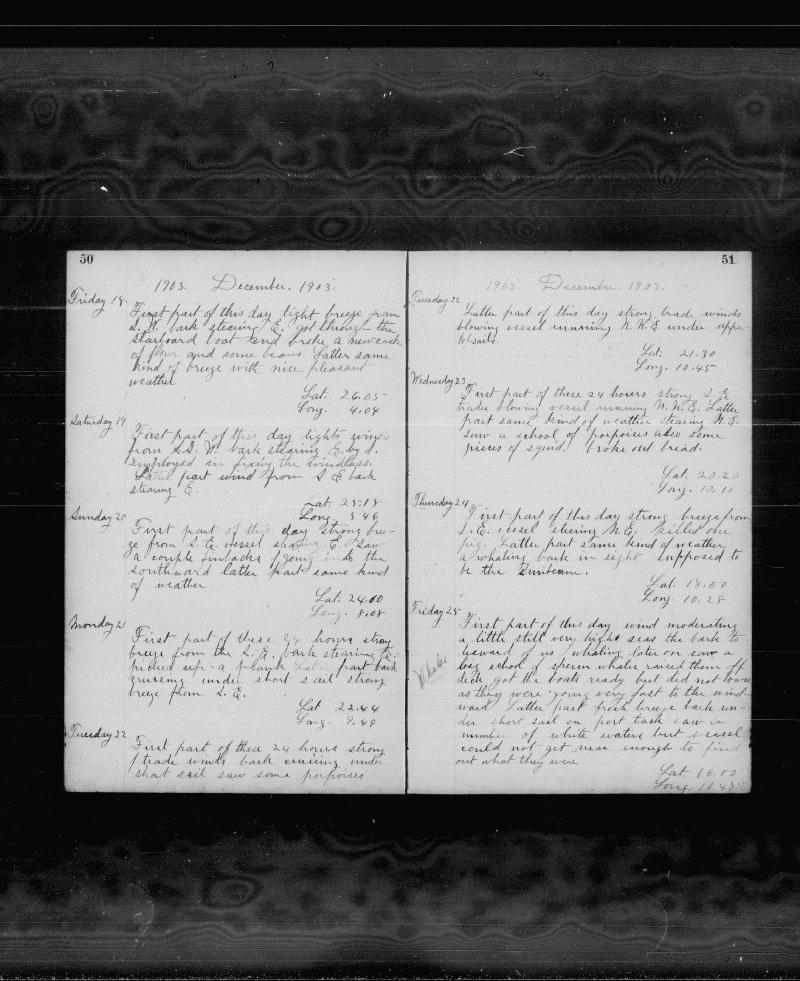 50
1903. December. 1903.
Friday 18.
First part of this day light breeze from
S.W. bark stearing E. got through the
starboard boat and broke a new cask
of flour and some beans. Latter same
kind of breeze with nice pleasant
weather
Lat. 26.05
Long. 4.04
Saturday 19
First part of this day lights winds
from S.S.W. bark stearing E. by S.
employed in fixing the windlass.
Latter part wind from S E bark
stearing E.
Lat. 25.18
Long. 5.46
Sunday 20
First part of this day strong bree-
ze from S.E. vessel stearing E. saw
a couple finbacks going to the
southward latter part same kind
of weather
Lat. 24.00
Long. 8.08
Monday 21
First part of these 24 hours strong
breeze from the S.E. bark stearing E.
picked up a plank Latter part bark
cruising under short sail strong
breeze from S.E.
Lat 22.44
Long. 9.49
Tuesday 22
First part of these 24 hours strong
trade winds bark cruising under
short sail saw some porpoises
51
1903. December 1903.
Tuesday 22
Latter part of this day strong trade winds
blowing vessel running N.N.E under upper
topsails.
Lat. 21.30
Long. 10.45
Wednesday 23
First part of these 24 hours strong S.E.
trades blowing vessel running N.N.E. Latter
part same kind of weather stearing N.E.
saw a school of porpoises also some
pieces of squid. broke out bread.
Lat. 20.20
Long. 10.11
Thursday 24
First part of this day strong breeze from
S.E. vessel stearing N.E. killed one
pig. Latter part same kind of weather
a whaling bark in sight supposed to
be the Sunbeam.
Lat. 18.00
Long. 10.28
Friday 25
First part of this day wind moderating
a little still very hight seas the bark to
leward of us whaling later on saw a
Whales
big school of sperm whales raised them off
deck got the boats ready but did not lower
as they were going very fast to the wind-
ward Latter part fresh breeze bark un-
der short sail on port tack saw a
number of white waters but vessel
could not get near enough to find
out what they were
Lat. 16.00
Long. 10.43